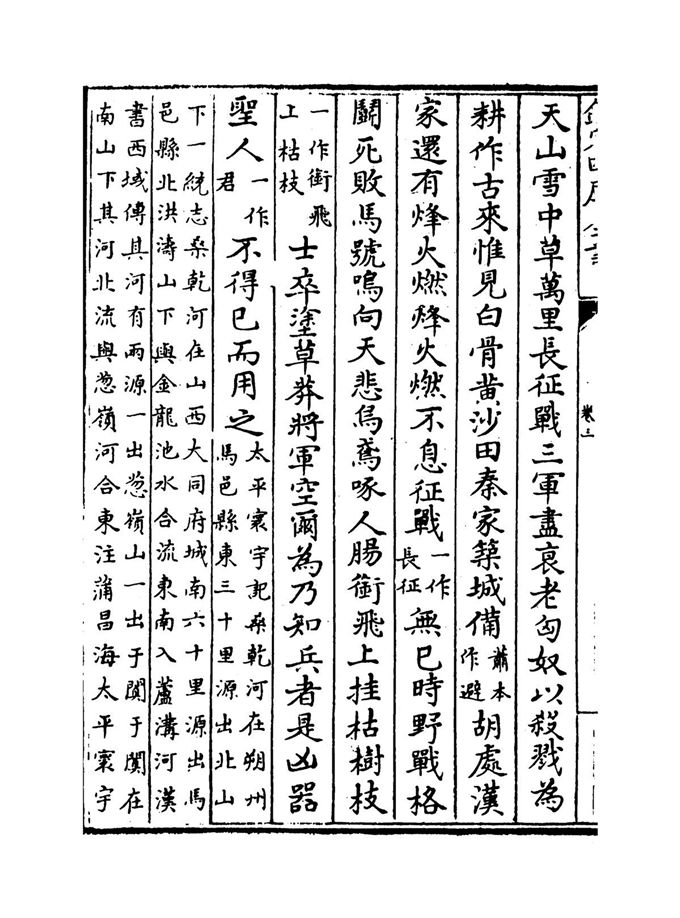 卷三
天山雪中草萬里長征戰三軍盡衰老匈奴以殺戮為
耕作古來惟見白骨黄沙田秦家築城備蕭本作避胡處漢
家還有烽火燃烽火燃不息征戰一作長征無已時野戰格
鬭死敗馬號鳴向天悲烏鳶啄人腸銜飛上挂枯樹枝
一作銜飛上枯枝士卒塗草莽將軍空爾為乃知兵者是凶器
聖人一作君不得已而用之太平寰宇記桑乾河在朔州馬邑縣東三十里源出北山
下一統志桑乾河在山西大同府城南六十里源出馬
邑縣北洪濤山下與金龍池水合流東南入蘆溝河漢
書西域傳其河有兩源一出葱嶺山一出于闐于闐在
南山下其河北流與葱嶺河合東注蒲昌海太平寰宇